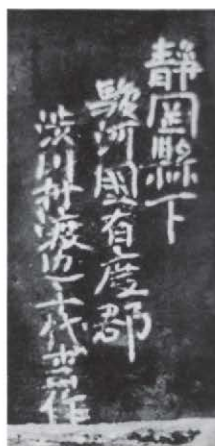 静岡縣下
駿河國有度郡
渋川村渡辺千代吉作